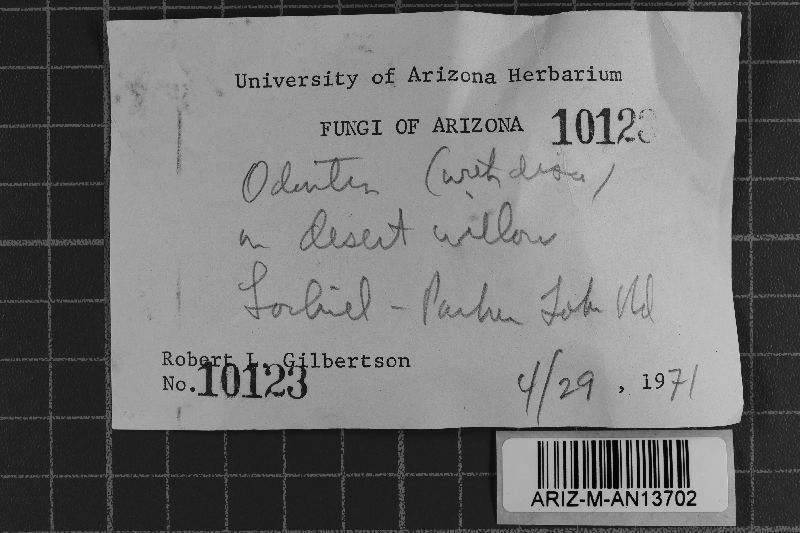 University of Arizona Herbarium
FUNGI OF ARIZONA 10123
Odontia (with
on desert willow
Lochiel - Parker Lake Rd
Robert L. Gilbertson
No. 10123
4/29, 1971
ARIZ-M-AN13702